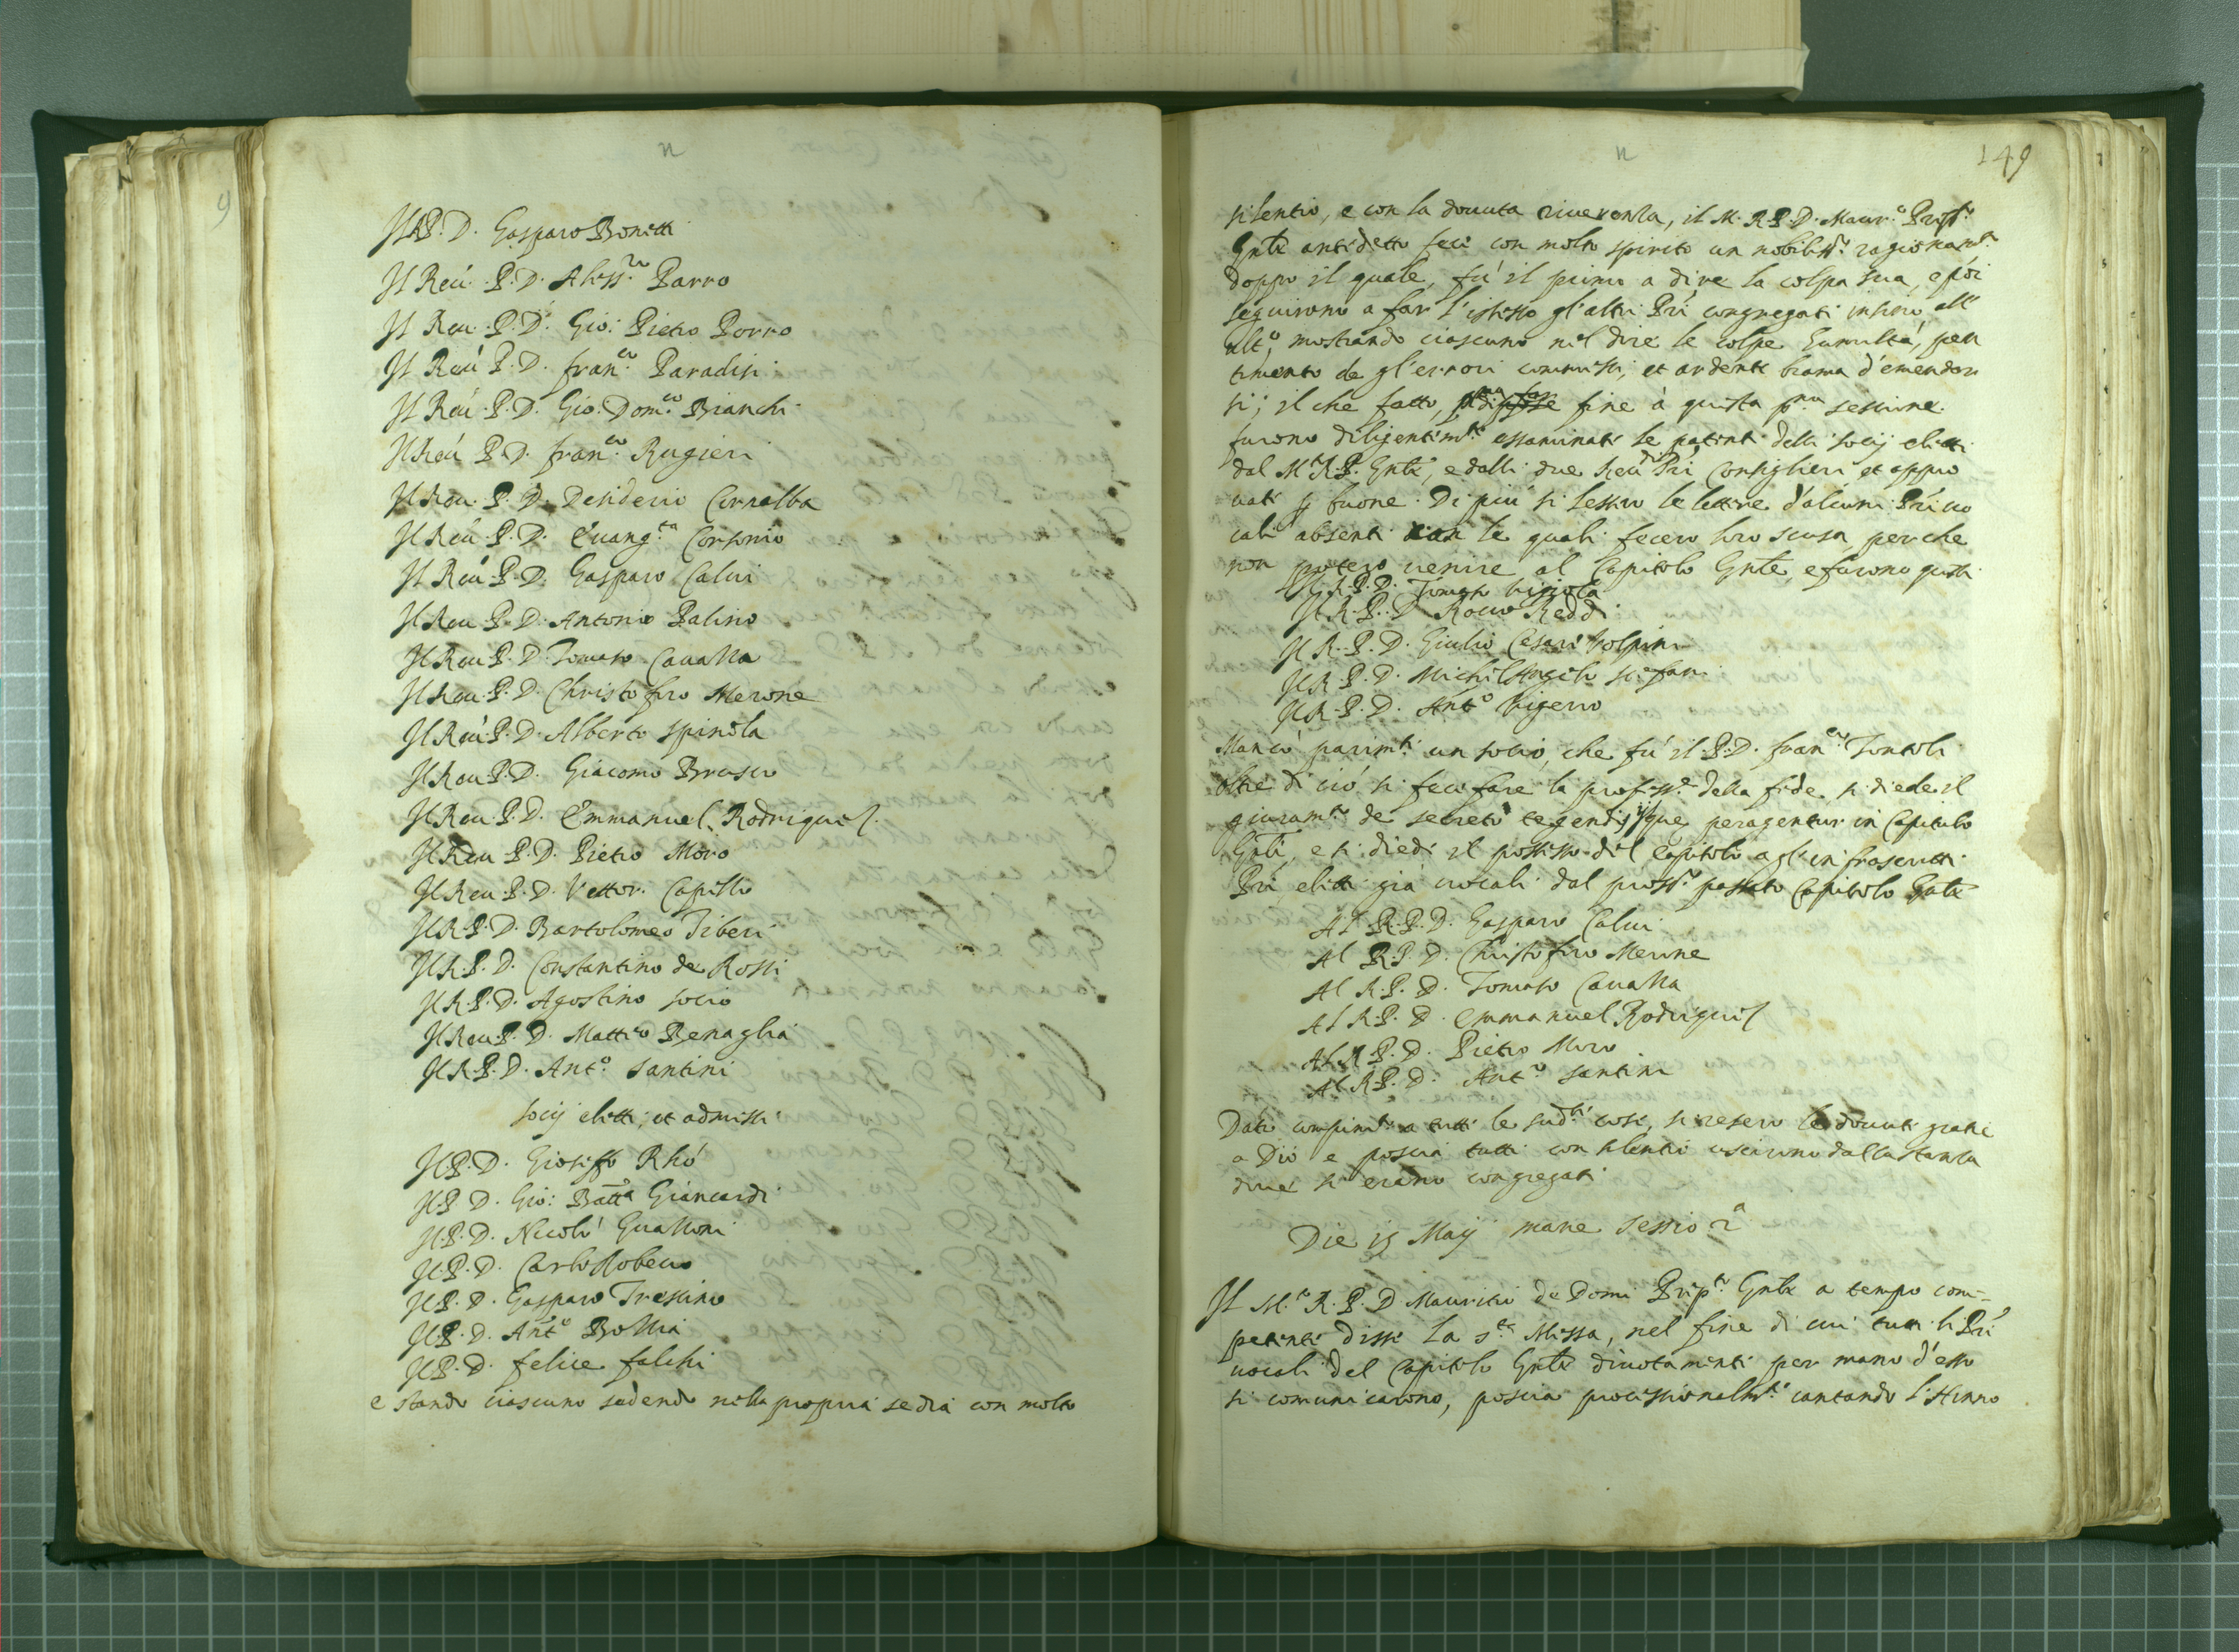 n
Il R. P. D. Gasparo Bonetti
Il Reu. P. D. Aless.ro Barro
Il Reu. P. D. Gio: Pietro Porro
Il Reu. P. D. fran.co Paradisi
Il Reu. P. D. Gio: Dom.co Bianchi
Il Reu. P. D. fran.co Rugieri
Il Reu. P. D. Desiderio Cornalba
Il Reu. P. D. Euang.ta Corsonio
Il Reu. P. D. Gasparo Calui
Il Reu. P. D. Antonio Palino
Il Reu. P. D. Tomaso Caualla
Il Reu. P. D. Christoforo Merone
Il Reu. P. D. Alberto Spinola
Il Reu. P. D. Giacomo Brusco
Il Reu. P. D. Emmanuel Rodriguel
Il Reu. P. D. Pietro Moro
Il Reu. P. D. Vettor Capello
Il R. P. D. Bartolomeo Tiberi
Il R. P. D. Constantino de Rossi
Il R. P. D. Agostino Socio
Il Reu. P. D. Matteo Benaglia
Il R. P. D. Ant.o Santini
Socij eletti, et admessi
Il P. D. Gioseffo Rhó
Il P. D. Gio: Batta Giancardi
Il P. D. Nicoló Gualloni
Il P. D. Carlo
Il P. D. Gasparo Tressino
Il P. D. Ant.o Bollia
Il P. D. felice falchi
e stando ciascuno sedendo nella propria sedia con molto
n
149
silentio, e con la douuta riuerenla, il M. R. P. D. Maur.o
Gnle antidetto fece con molto spirito un nobiliss.o ragionam.to
doppo il quale, fú il primo a dire la colpa sua, e poi
seguirono a far l'istesso gl'altri Pri congregati insino all'
ult.o mostrando ciascuno nel dire le colpe humiltá, pen
timento de gl'errori commessi, et ardente brama d'emendar
si; il che fatto, fine à questa p.ma sessione.
furono diligentim.te essaminati le patenti delli socij eletti
dal M. R. P. Gnle, e dalli due Reu.di Pri Consiglieri et appro
uati p buone. Di piú si lessero le lettere d'alcuni Pri uo
cali absenti con le quali fecero loro scusa, perche
non potero uenire al Capitolo Gnle, e furono questi
Il R. P. D. Tomaso
Il R. P. D. Rocco Reddi
Il R. P. D. Giulio Cesare Volpini
Il R. P. D. Michel'Angelo Stefani
Il R. P. D. Ant.o
Mancó parim.te un socio, che fú il P. D. fran.co Tontoli
oltre di ció si fece fare la profess.e della fede, si diede il
giuram.to de secreto tegendis que peragentur in Capitulo
Gnli, e si diede il possesso del Capitolo a gl'infrascritti
Pri eletti gia uocali dal pross.o passato Capitolo Gnle
Al R. P. D. Gasparo Calui
Al R. P. D. Christoforo Merone
Al R. P. D. Tomaso Caualla
Al R. P. D. Emmanuel Rodriguel
Al R. P. D. Pietro Moro
Al R. P. D. Ant.o Santini
Dato compim.to a tutte le sud.te cose, si resero le douute gratie
a Dio e poscia tutti con silentio uscirono dalla stanla
doue si erano congregati
Die 15 Maij mane sessio 2a
Il M.to R. P. D Mauritio de Domi Prep.to Gnle a tempo com=
petente disse la s.ta Messa, nel fine di cui tutti li Pri
uocali del Capitolo Gnle diuotamente per mano d'esso
si comunicarono, poscia processionalm.te cantando l'Hinno